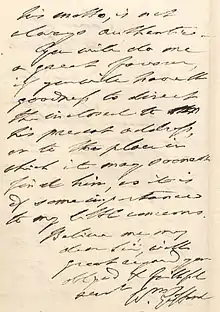 his motto, is not
always authentic.
You will do me
a great favour,
if you will have the
goodness to direct
the inclosed to
his present address,
or to the place in
which it may soonest
find him, as it is
of some importance
to my little concerns.
Believe me my
dear Sir, with
great regard your
obliged & faithful
servt
Wm Gifford